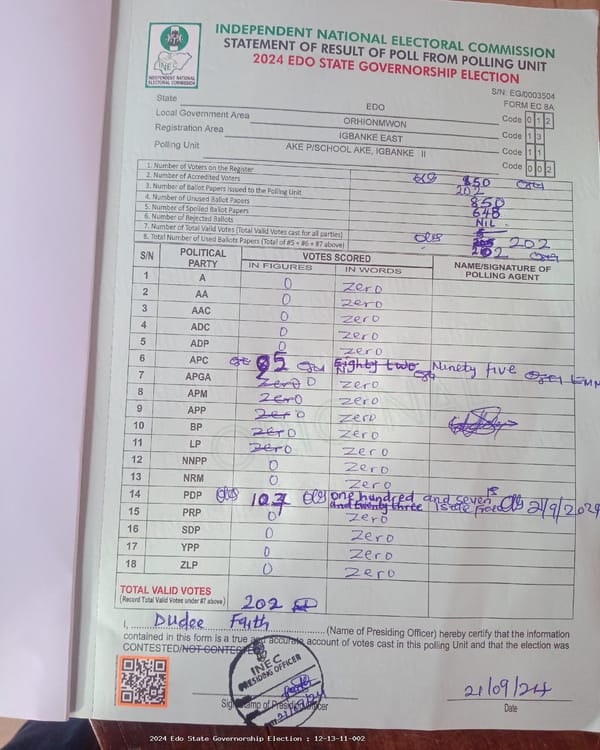 INDEPENDENT NATIONAL ELECTORAL COMMISSION
STATEMENT OF RESULT OF POLL FROM POLLING UNIT
2024 EDO STATE GOVERNORSHIP ELECTION
INEC
INDEPENDENT NATIONAL ELECTORAL COMMISSION
S/N: EG/0003504
FORM EC 8A
State EDO
Local Government Area ORHIONMWON Code 0 1 2
Registration Area IGBANKE EAST Code 1 3
Polling Unit AKE P/SCHOOL AKE, IGBANKE II Code 1 1
Code 0 0 2
1. Number of Voters on the Register 850
2. Number of Accredited Voters 202
3. Number of Ballot Papers Issued to the Polling Unit 850
4. Number of Unused Ballot Papers 648
5. Number of Spoiled Ballot Papers NIL
6. Number of Rejected Ballots
7. Number of Total Valid Votes (Total Valid Votes cast for all parties) 202
8. Total Number of Used Ballots Papers (Total of #5 + #6 + #7 above) 202
S/N POLITICAL PARTY VOTES SCORED NAME/SIGNATURE OF POLLING AGENT
IN FIGURES IN WORDS
1 A 0 zero
2 AA 0 zero
3 AAC 0 zero
4 ADC 0 zero
5 ADP 0 zero
6 APC 95 Eighty two Ninety five
7 APGA zero 0 zero
8 APM zero 0 zero
9 APP zero 0 zero
10 BP zero 0 zero
11 LP zero 0 zero
12 NNPP 0 zero
13 NRM 0 zero
14 PDP 107 one hundred and seven and twenty three 21/9/2024
15 PRP 0 zero
16 SDP 0 zero
17 YPP 0 zero
18 ZLP 0 zero
TOTAL VALID VOTES
(Record Total Valid Votes under #7 above) 202
I, Dudee Faith (Name of Presiding Officer) hereby certify that the information
contained in this form is a true and accurate account of votes cast in this polling Unit and that the election was
CONTESTED/NOT CONTESTED
INEC
PRESIDING OFFICER
21/09/24
21/09/24
Date
2024 Edo State Governorship Election : 12-13-11-002